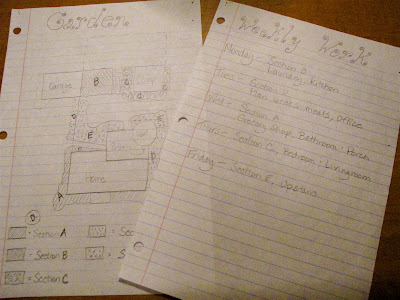 Garden
Garage
B
Home
A
D
= Section A
= Section B
= Section C
Weekly Work
Monday - Section B
Laundry, Kitchen
Tues - Section
Plan week meals, Office
Wed - Section A
Grocery Shop, Bathroom, Porch
Thurs - Section C, Bedroom, Livingroom
Friday - Section E, Upstairs